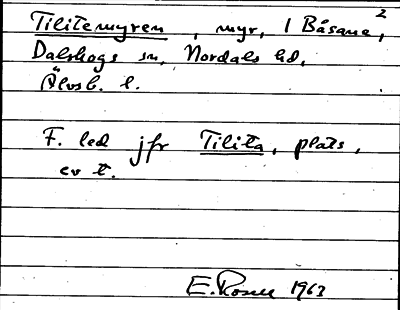 Tilitemyren, myr, 1 Båsane²,
Dalskogs sn, Nordals hd,
Älvsb. l.
F. led jfr Tilita, plats,
ev t.
E. Rosen 1963